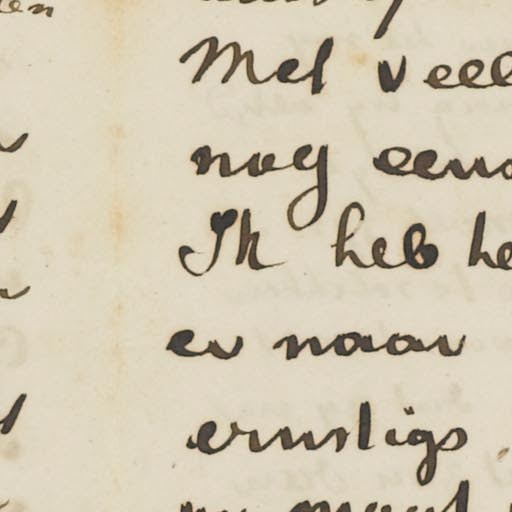 en
Met veel
nog eens
Ik heb he
er naar
ernstigs